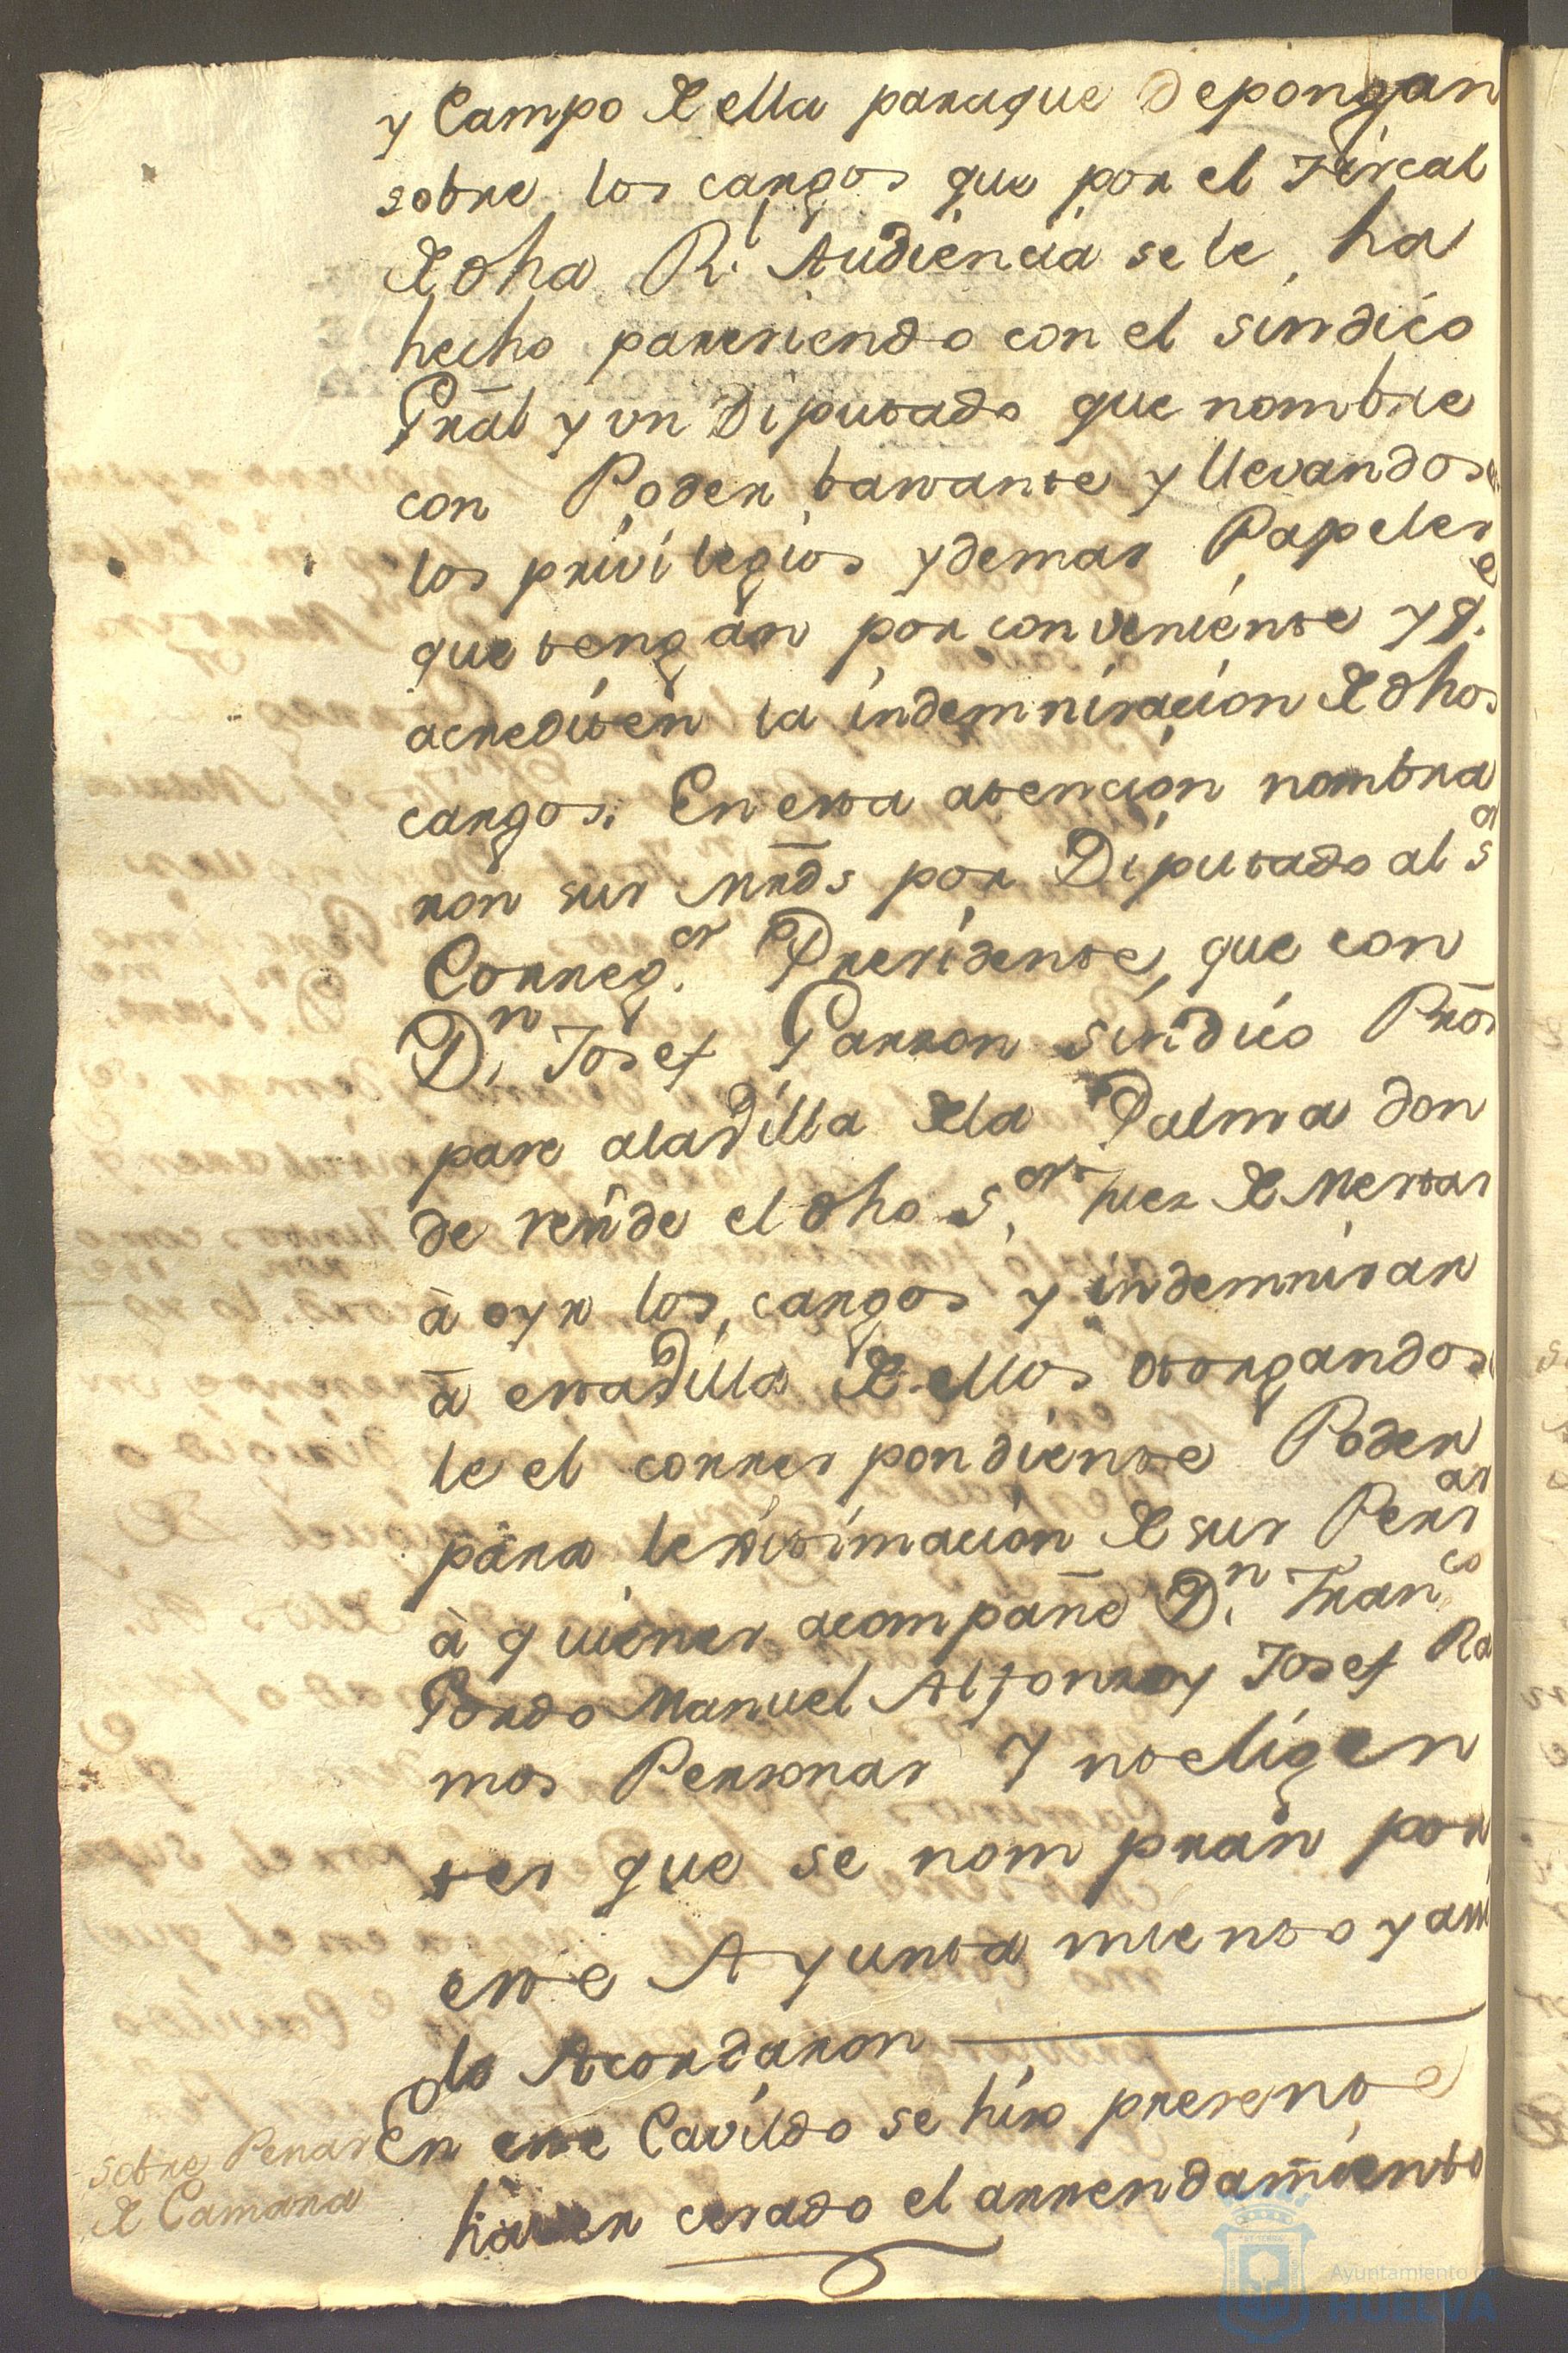 y Campo de ella paraque depongan
sobre los cargos que por el Fiscal
de dha Rl. Audiencia sele ha
hecho pareciendo con el sindico
Gral y un Diputado que nombre
con Poder bastante y llevandose
los privilegios y demas Papeles
que tengan por conveniente y qe.
acrediten la indemnisacion de dhos
cargos. En esta atencion nombra
ron sus mrds por Diputado al sor
Correg.or Presidente, que con
Dn. Josef Garron sindico Pror
pase alaVilla dela Palma don
de reside el dho S.or Juez de Mestas
à oyr los cargos y indemnisar
à estaVilla de ellos otorgandos
le el correspondiente Poder
para lexitimacion de sus Persas
à quienes acompañe Dn. Franco
Pardo Manuel Alfonso y Josef Ra
mos Personas Ynteligen
tes que se nompran por
este Ayuntamiento y assi
lo Acordaron
sobre Penas
de Camara
En este Cavildo se hiso presente
haver cesado el arrendamiento
Ayuntamiento de
HUELVA